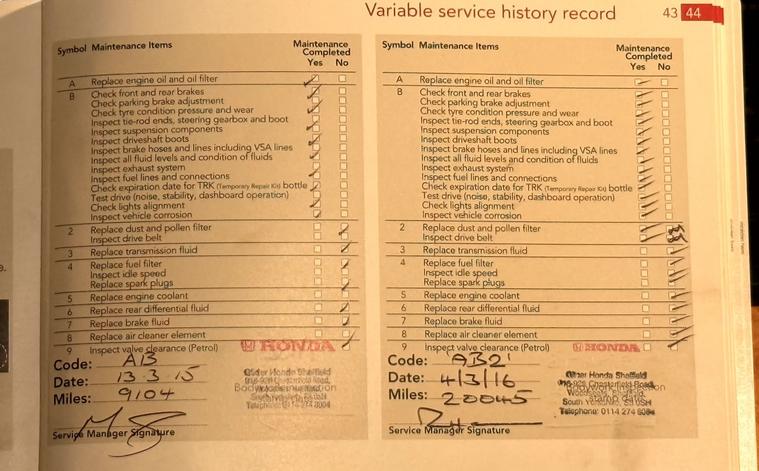 Variable service history record 43 44
Symbol Maintenance Items Maintenance Completed
Yes No
A Replace engine oil and oil filter
B Check front and rear brakes
Check parking brake adjustment
Check tyre condition pressure and wear
Inspect tie-rod ends, steering gearbox and boot
Inspect suspension components
Inspect driveshaft boots
Inspect brake hoses and lines including VSA lines
Inspect all fluid levels and condition of fluids
Inspect exhaust system
Inspect fuel lines and connections
Check expiration date for TRK (Temporary Repair Kit) bottle
Test drive (noise, stability, dashboard operation)
Check lights alignment
Inspect vehicle corrosion
2 Replace dust and pollen filter
Inspect drive belt
3 Replace transmission fluid
4 Replace fuel filter
Inspect idle speed
Replace spark plugs
5 Replace engine coolant
6 Replace rear differential fluid
7 Replace brake fluid
8 Replace air cleaner element
9 Inspect valve clearance (Petrol)
HONDA
Code: A13
Date: 13 3 15
Miles: 9104
Honda Sheffield
Telephone: 0114 274 8004
Service Manager Signature
Symbol Maintenance Items Maintenance Completed
Yes No
A Replace engine oil and oil filter
B Check front and rear brakes
Check parking brake adjustment
Check tyre condition pressure and wear
Inspect tie-rod ends, steering gearbox and boot
Inspect suspension components
Inspect driveshaft boots
Inspect brake hoses and lines including VSA lines
Inspect all fluid levels and condition of fluids
Inspect exhaust system
Inspect fuel lines and connections
Check expiration date for TRK (Temporary Repair Kit) bottle
Test drive (noise, stability, dashboard operation)
Check lights alignment
Inspect vehicle corrosion
2 Replace dust and pollen filter
Inspect drive belt
3 Replace transmission fluid
4 Replace fuel filter
Inspect idle speed
Replace spark plugs
5 Replace engine coolant
6 Replace rear differential fluid
7 Replace brake fluid
8 Replace air cleaner element
9 Inspect valve clearance (Petrol)
HONDA
Code: AB2
Date: 4/3/16
Miles: 20045
Honda Sheffield
Chesterfield Road,
South
Telephone: 0114 274
Service Manager Signature